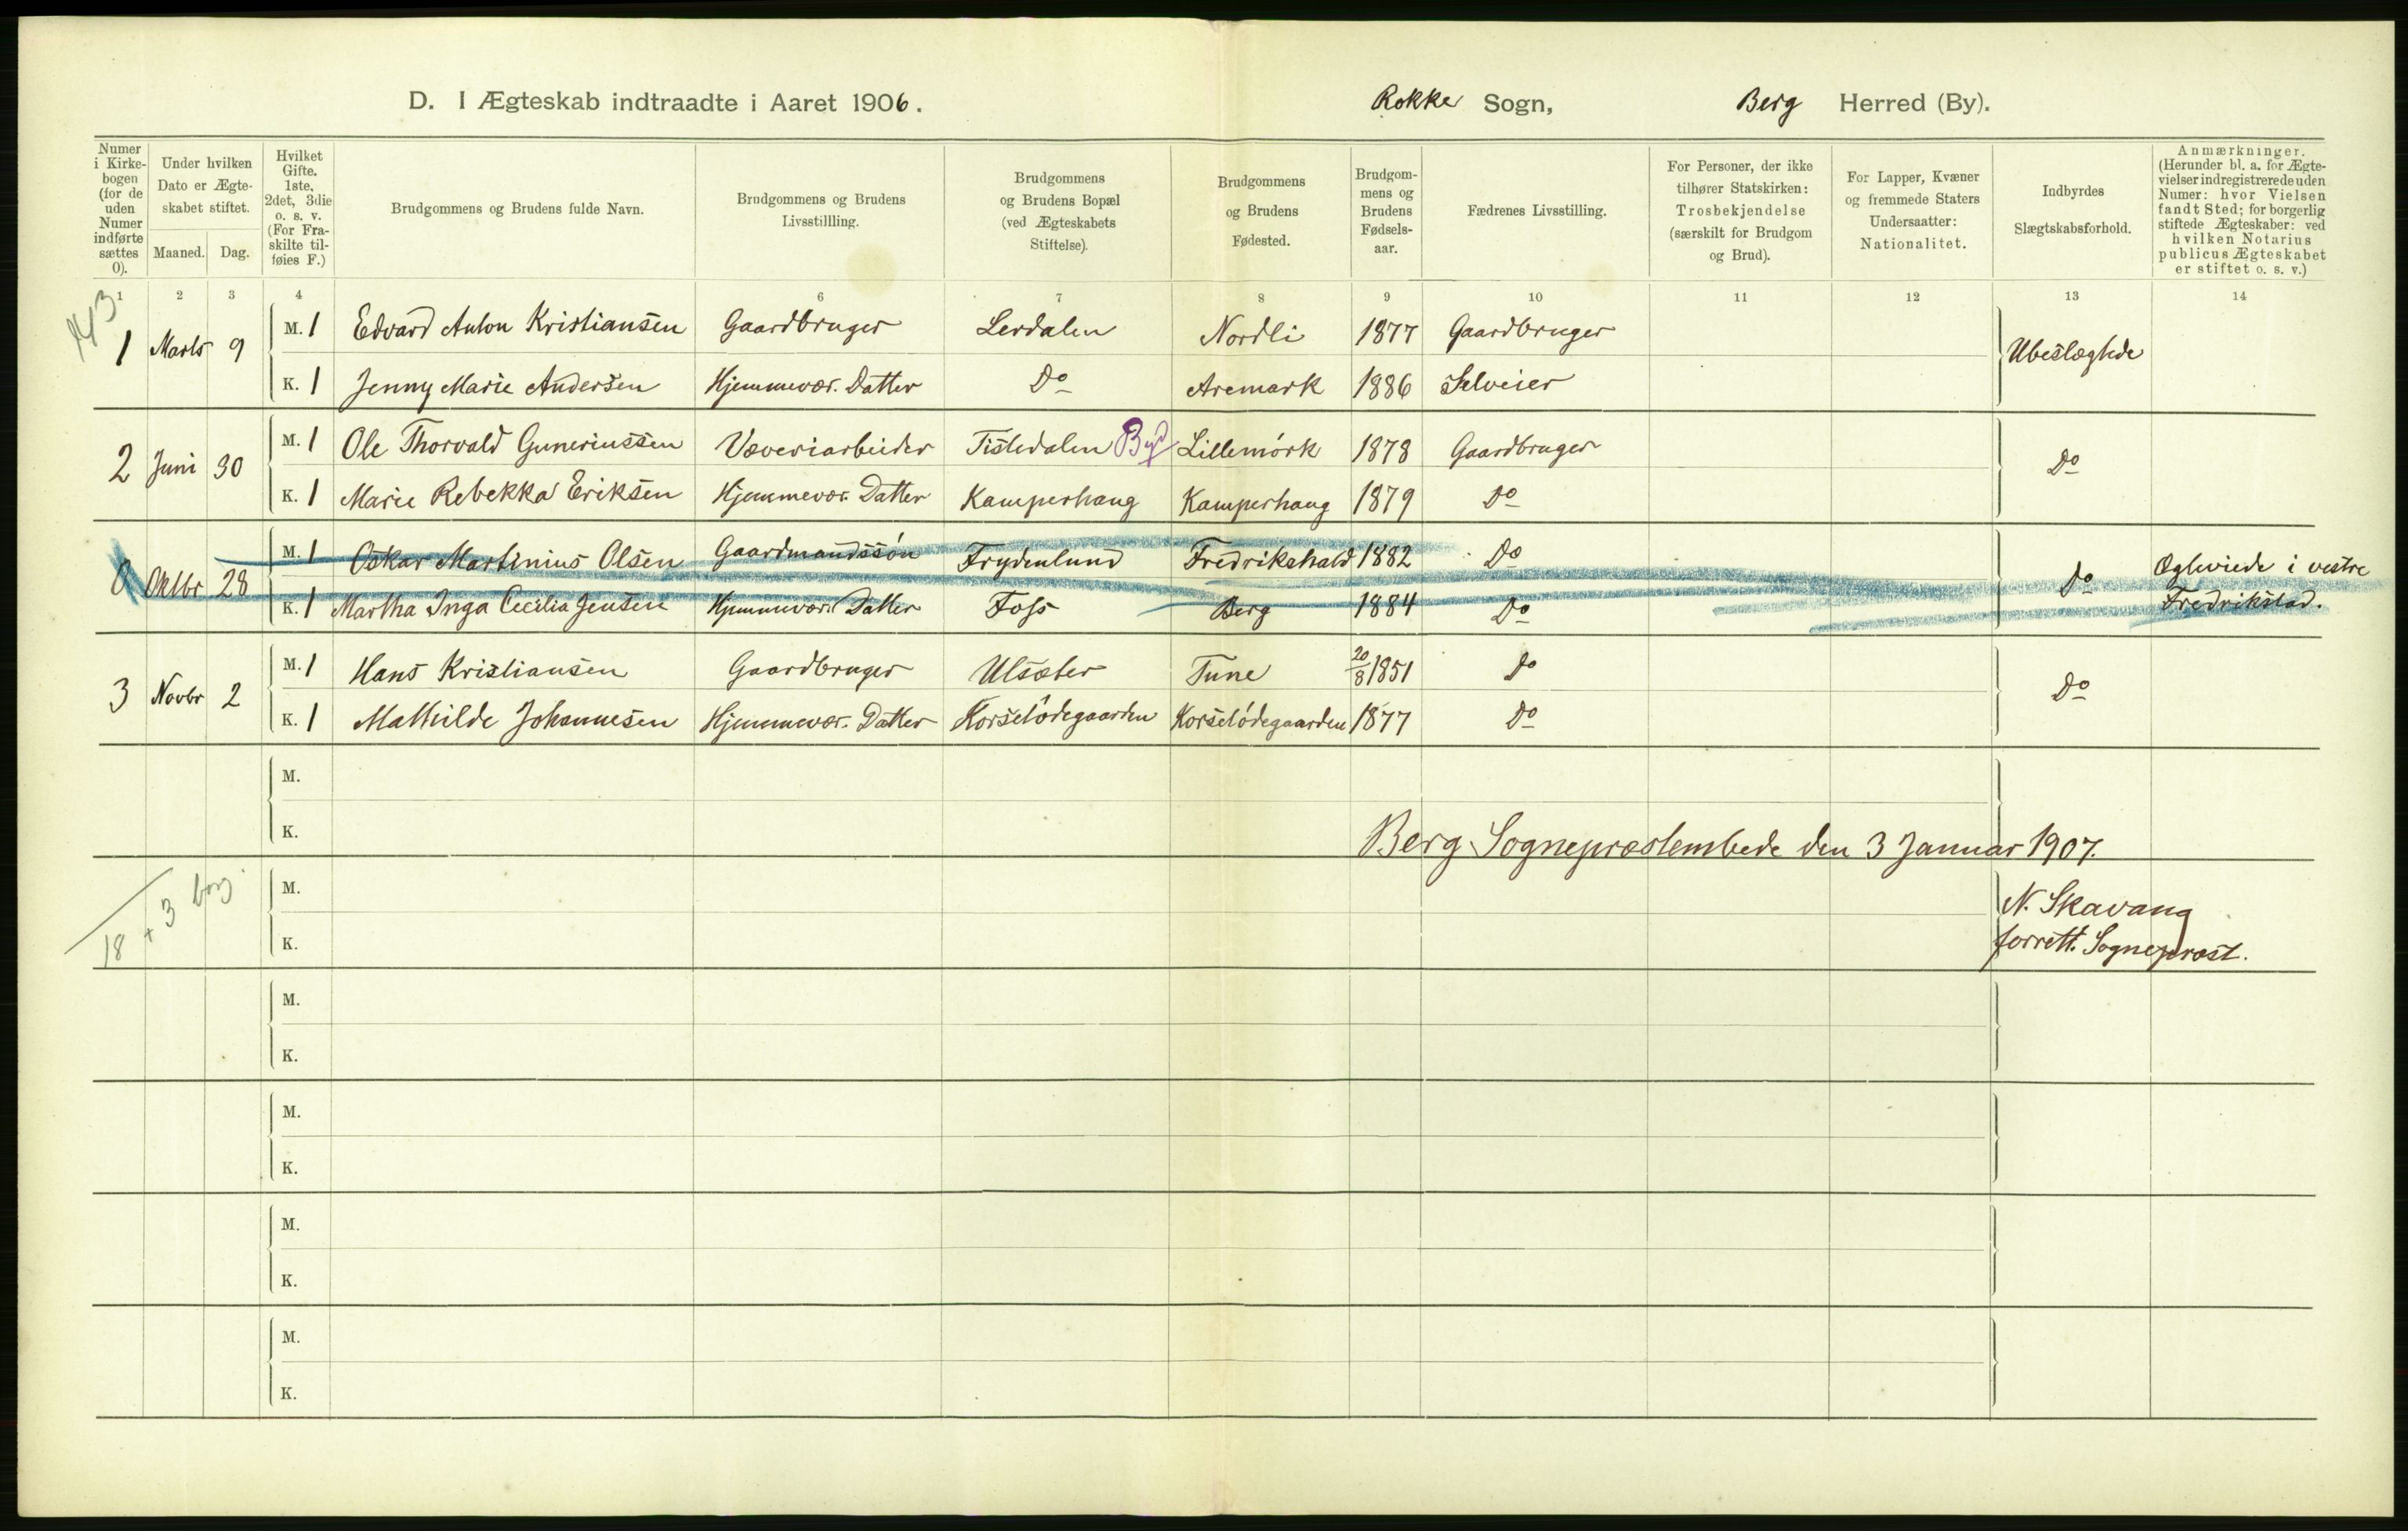 D. I Ægteskab indtraadte i Aaret 1906. Rokke Sogn, Berg Herred (By).
Numer i Kirkebogen (for de uden Numer indførte sættes 0).
Under hvilken Dato er Ægteskabet stiftet.
Maaned. Dag.
Hvilket Gifte. 1ste, 2det, 3die o. s. v. (For Fraskilte tilføies F.)
Brudgommens og Brudens fulde Navn.
Brudgommens og Brudens Livsstillling.
Brudgommens og Brudens Bopæl (ved Ægteskabets Stiftelse).
Brudgommens og Brudens Fødested.
Brudgommens og Brudens Fødselsaar.
Fædrenes Livsstilling.
For Personer, der ikke tilhører Statskirken: Trosbekjendelse (særskilt for Brudgom og Brud).
For Lapper, Kvæner og fremmede Staters Undersaatter: Nationalitet.
Indbyrdes Slægtskabsforhold.
Anmærkninger. (Herunder bl. a. for Ægtevielser indregistrerede uden Numer: hvor Vielsen fandt Sted; for borgerlig stiftede Ægteskaber: ved hvilken Notarius publicus Ægteskabet er stiftet o. s. v.)
1 2 3 4 6 7 8 9 10 11 12 13 14
1 Marts 9 M. 1 Edvard Anton Kristiansen Gaardbruger Lerdalen Nordli 1877 Gaardbruger Ubeslægtede
K. 1 Jenny Marie Andersen Hjemmevær. Datter Do Aremark 1886 Selveier
2 Juni 30 M. 1 Ole Thorvald Guneriussen Væveriarbeider Tistedalen Byd Lillemörk 1878 Gaardbruger Do
K. 1 Marie Rebekka Eriksen Hjemmevær. Datter Kamperhaug Kamperhaug 1879 Do
0 Oktbr 28 M. 1 Oskar Martinius Olsen Gaardmandssön Frydenlund Fredrikshald 1882 Do Do Ægteviede i vestre
K. 1 Martha Inga Cecilia Jensen Hjemmevær. Datter Foss Berg 1884 Do Fredrikstad.
3 Novbr 2 M. 1 Hans Kristiansen Gaardbruger Ulsæter Tune 20/8 1851 Do Do
K. 1 Mathilde Johannesen Hjemmevær. Datter Korselödegaarden Korselödegaarden 1877 Do
M.
K.
Berg Sognepræstembede den 3 Januar 1907.
18 + 3 borg.
M.
N. Skavang
K.
forrett. Sognepræst.
M.
K.
M.
K.
M.
K.
M.
K.